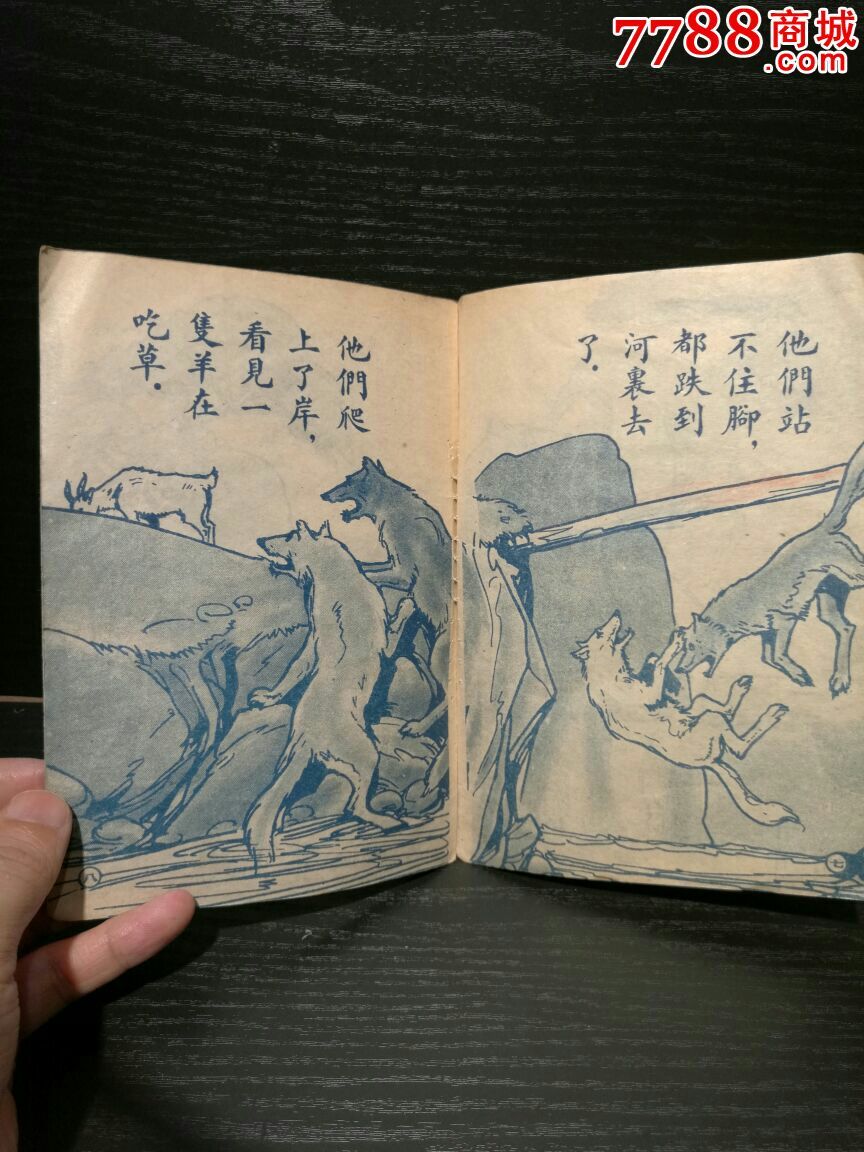 7788商城
.com
他們站
不住腳，
都跌到
河裏去
了．
七
他們爬
上了岸，
看見一
隻羊在
吃草．
八